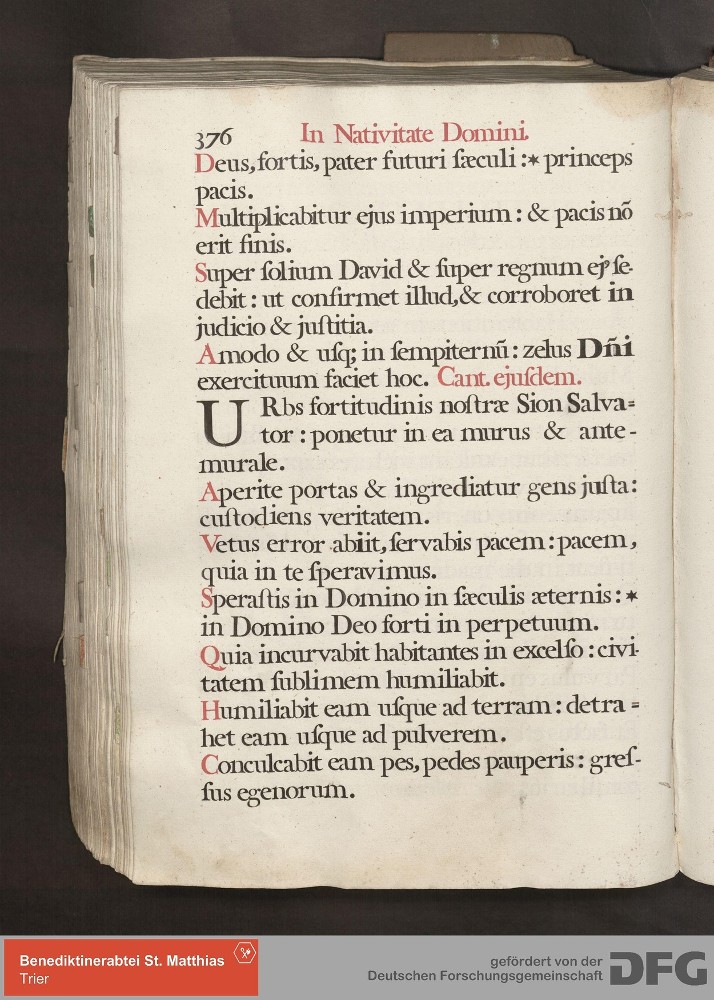 376 In Nativitate Domini.
Deus, fortis, pater futuri sæculi :* princeps
pacis.
Multiplicabitur ejus imperium : & pacis nõ
erit finis.
Super ſolium David & ſuper regnum ejꝰ ſe-
debit : ut confirmet illud, & corroboret in
judicio & juſtitia.
Amodo & uſq; in ſempiternũ : zelus Dñi
exercituum faciet hoc. Cant. ejuſdem.
URbs fortitudinis noſtræ Sion Salva=
tor : ponetur in ea murus & ante-
murale.
Aperite portas & ingrediatur gens juſta :
cuſtodiens veritatem.
Vetus error abiit, ſervabis pacem : pacem,
quia in te ſperavimus.
Speraſtis in Domino in ſæculis æternis : *
in Domino Deo forti in perpetuum.
Quia incurvabit habitantes in excelſo : civi-
tatem ſublimem humiliabit.
Humiliabit eam uſque ad terram : detra=
het eam uſque ad pulverem.
Conculcabit eam pes, pedes pauperis : greſ-
ſus egenorum.
Benediktinerabtei St. Matthias
Trier
gefördert von der
Deutschen Forschungsgemeinschaft
DFG